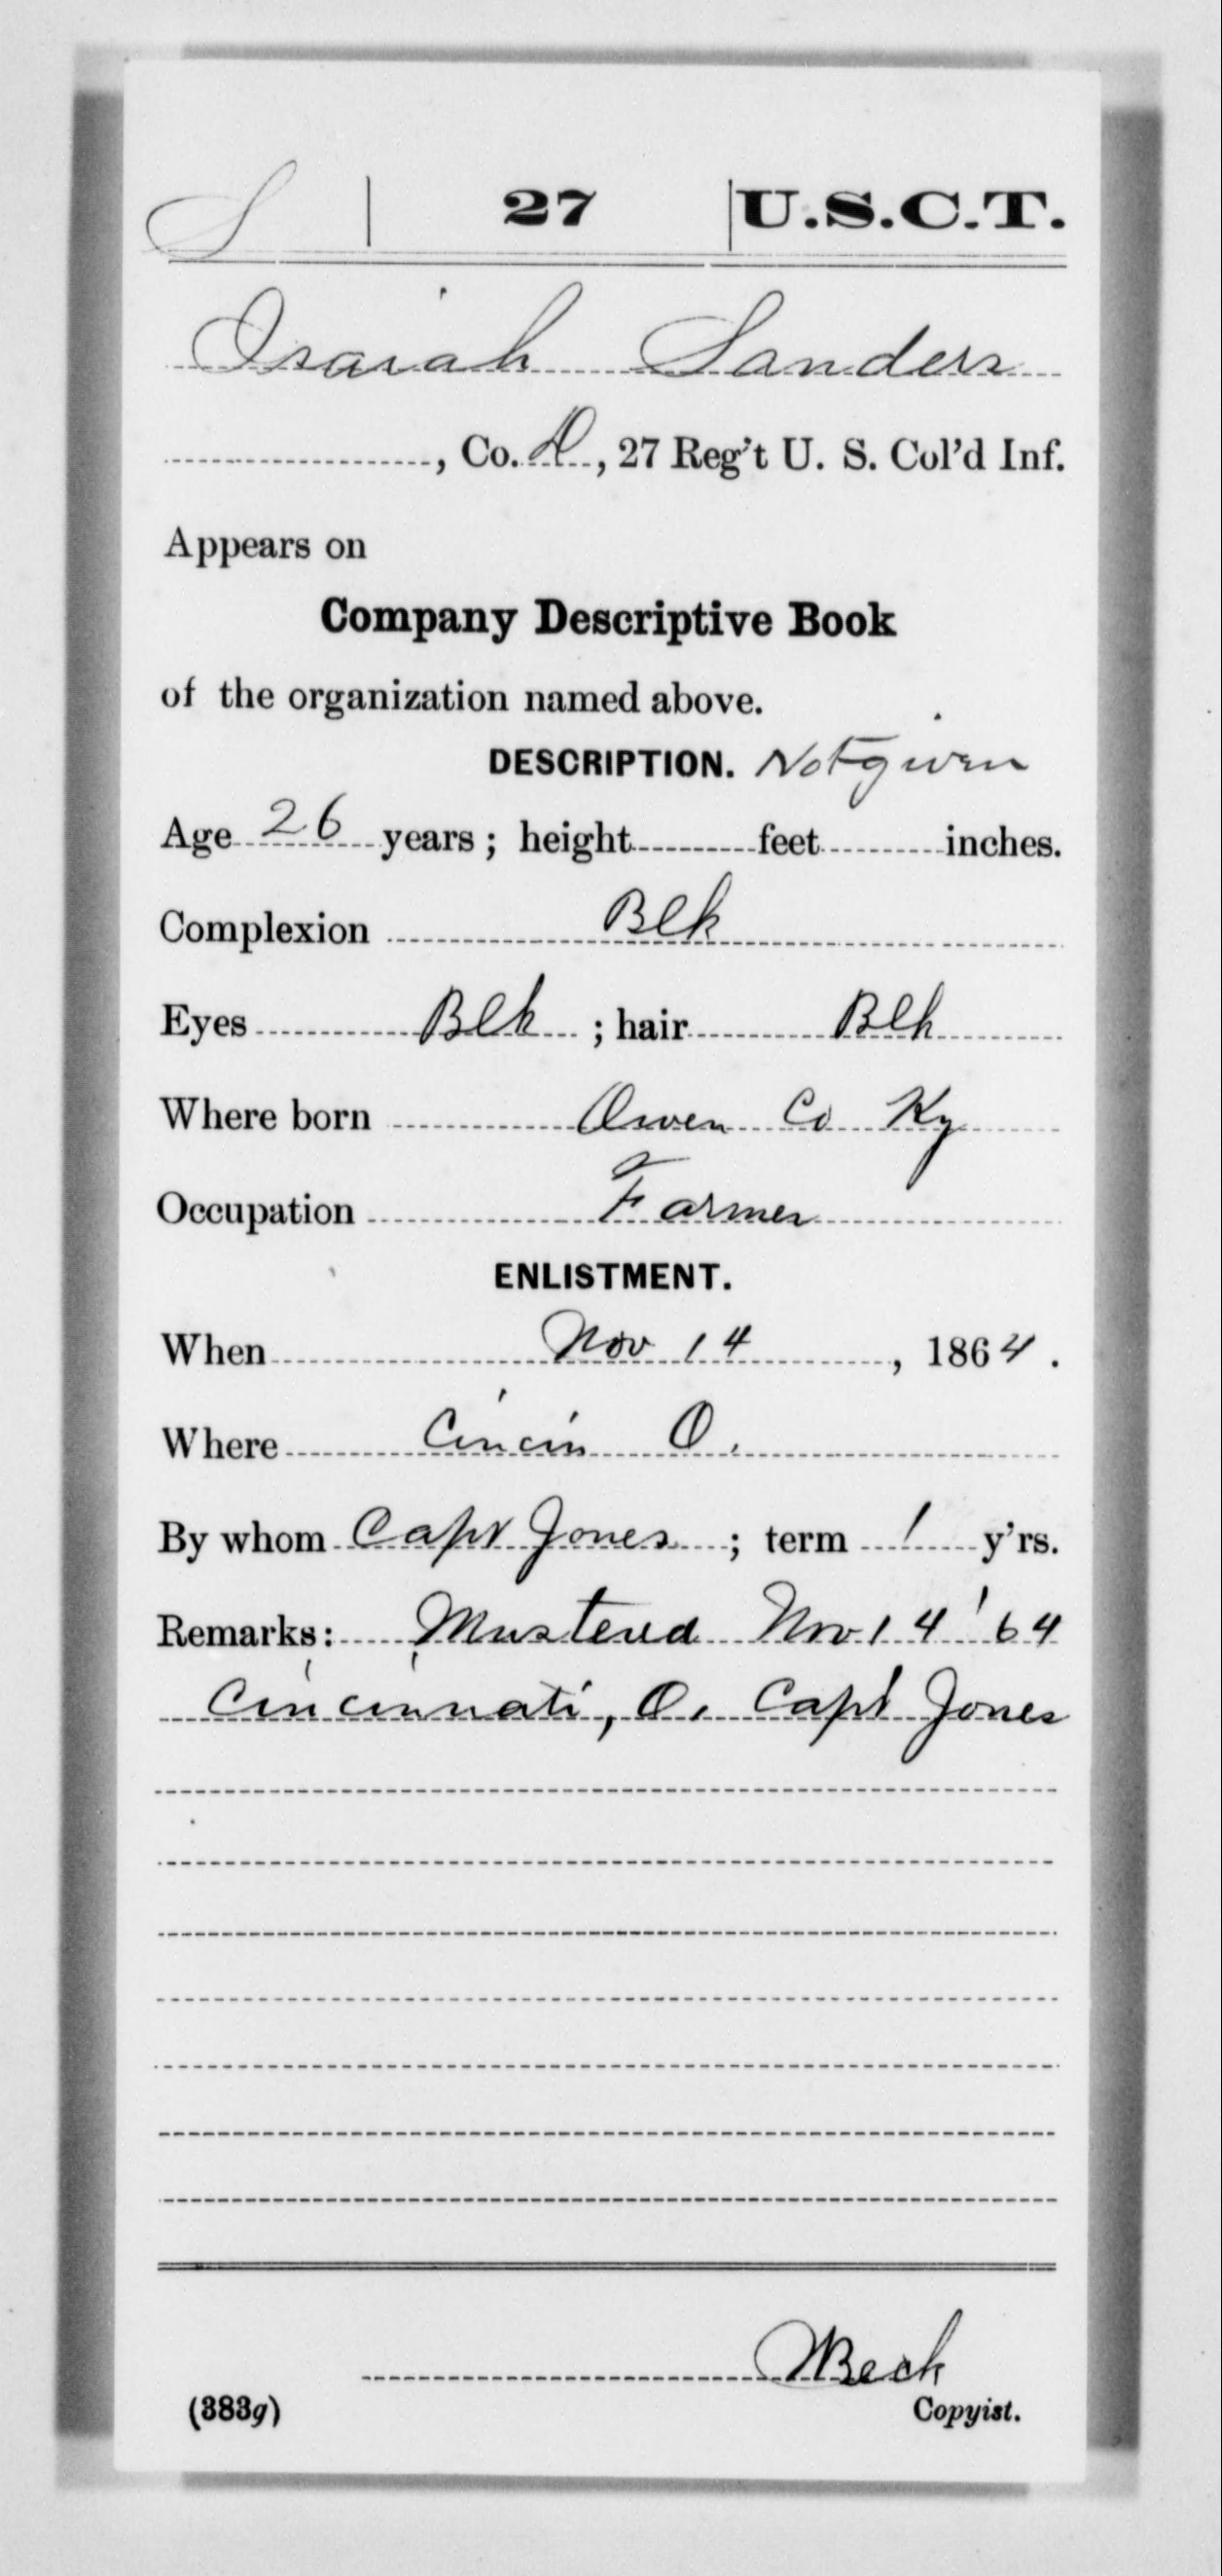 S | 27 | U.S.C.T.
Isaiah Sanders
, Co. D, 27 Reg't U. S. Col'd Inf.
Appears on
Company Descriptive Book
of the organization named above.
DESCRIPTION. Not given
Age 26 years; height feet inches.
Complexion Blk
Eyes Blk ; hair Blk
Where born Owen Co Ky
Occupation Farmer
ENLISTMENT.
When Nov 14, 1864.
Where Cincin O.
By whom Capt Jones ; term 1 y'rs.
Remarks: Mustered Nov 14 '64
Cincinnati, O. Capt Jones
Beck
(383g) Copyist.